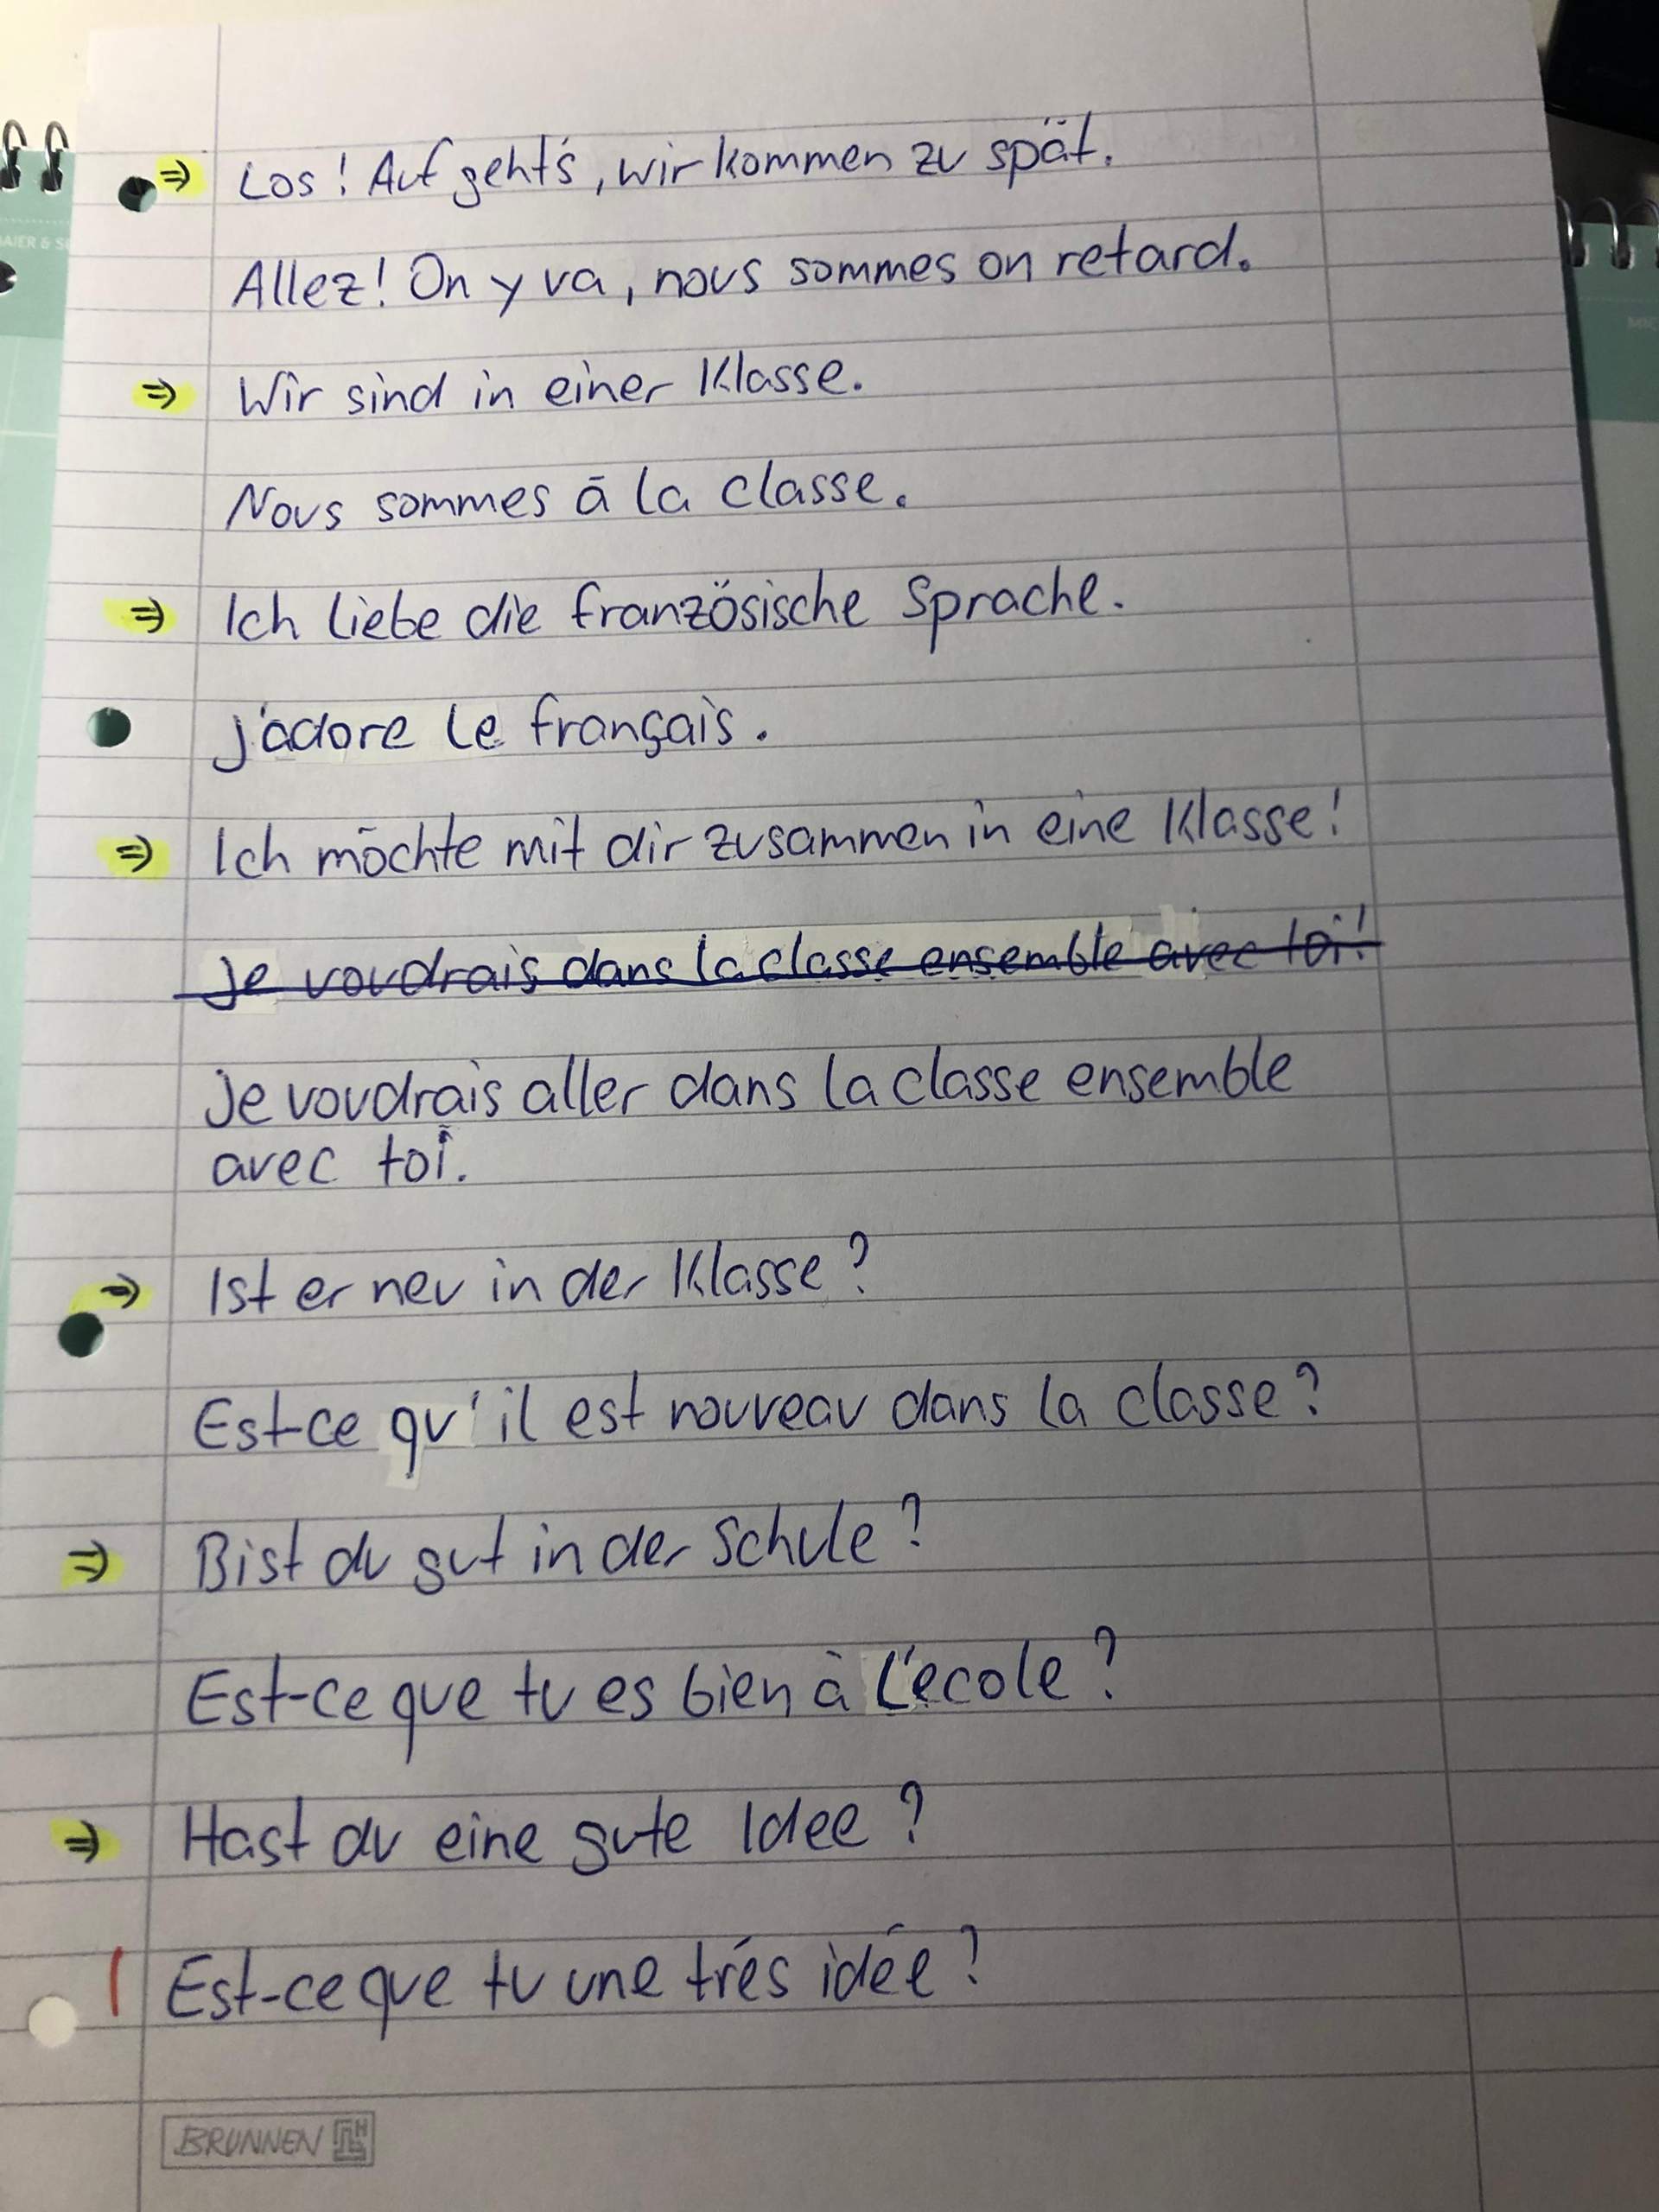 ⇒ Los! Auf geht's, wir kommen zu spät.
Allez! On y va, nous sommes on retard.
⇒ Wir sind in einer Klasse.
Nous sommes à la classe.
⇒ Ich liebe die französische Sprache.
J'adore le français.
⇒ Ich möchte mit dir zusammen in eine Klasse!
Je voudrais dans la classe ensemble avec toi!
Je voudrais aller dans la classe ensemble
avec toi.
⇒ Ist er neu in der Klasse?
Est-ce qu'il est nouveau dans la classe?
⇒ Bist du gut in der Schule?
Est-ce que tu es bien à l'ecole?
⇒ Hast du eine gute Idee?
Est-ce que tu une trés idée?
BRUNNEN